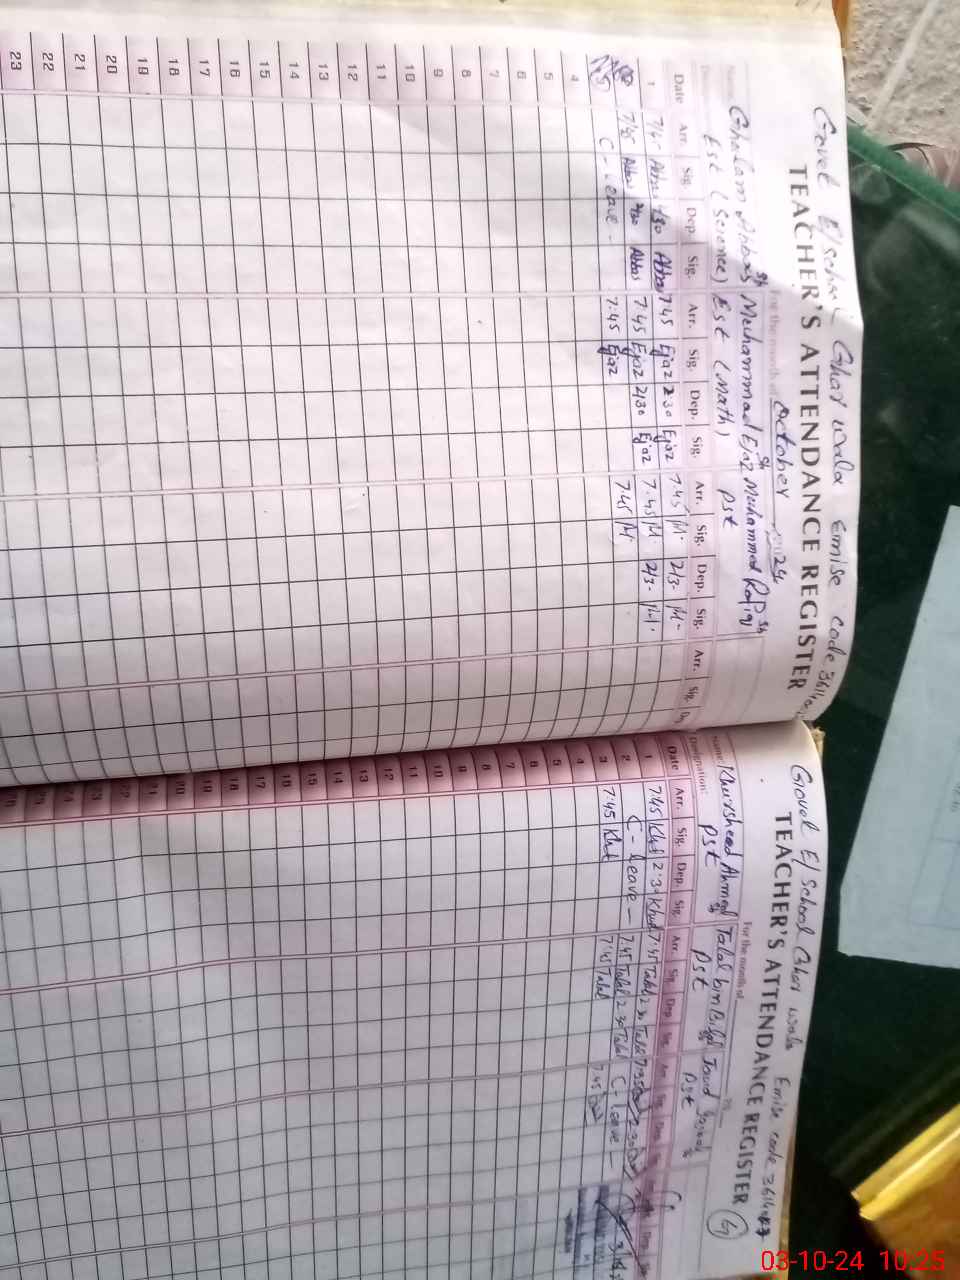 Govt E/school Ghar wala Emise code 3611
TEACHER'S ATTENDANCE REGISTER
For the month of October 2024
Ghulam Abbas Sb Muhammad Ejaz Sb Muhammad Rafiq Sb
Est (Science) Est (Math) Pst
Date Arr. Sig. Dep. Sig. Arr. Sig. Dep. Sig. Arr. Sig. Dep. Sig. Arr. Sig.
1 Abbas 7:45 Ejaz 2:30 Ejaz 7:45 M. 2/3- M-
Abbas Abbas 7:45 Ejaz 2/30 Ejaz 7.45 M. 2/3- M.
C-Leave- 7:45 Ejaz 7.45 M.
4
5
6
7
8
9
10
11
12
13
14
15
16
17
18
19
20
21
22
23
Govt E/School Ghar wala Emise code 3611
TEACHER'S ATTENDANCE REGISTER
For the month of
Name: Khursheed Ahmed Sb Talal bin Sb Javid Sb
Designation: Pst Pst Pst
Date Arr. Sig. Dep. Sig. Arr. Sig. Dep. Sig. Arr. Sig. Dep.
1 7:45 Khud 2:30 Khud 7:45 Talal 2:30 Talal 2:30
2 C- Leave - 7:45 Talal 2:30 Talal C- Leave -
3 7:45 Khud 7:45 Talal 7:45
4
5
6
7
8
9
10
11
12
13
14
15
16
17
18
19
20
21
22
23
03-10-24 10:25